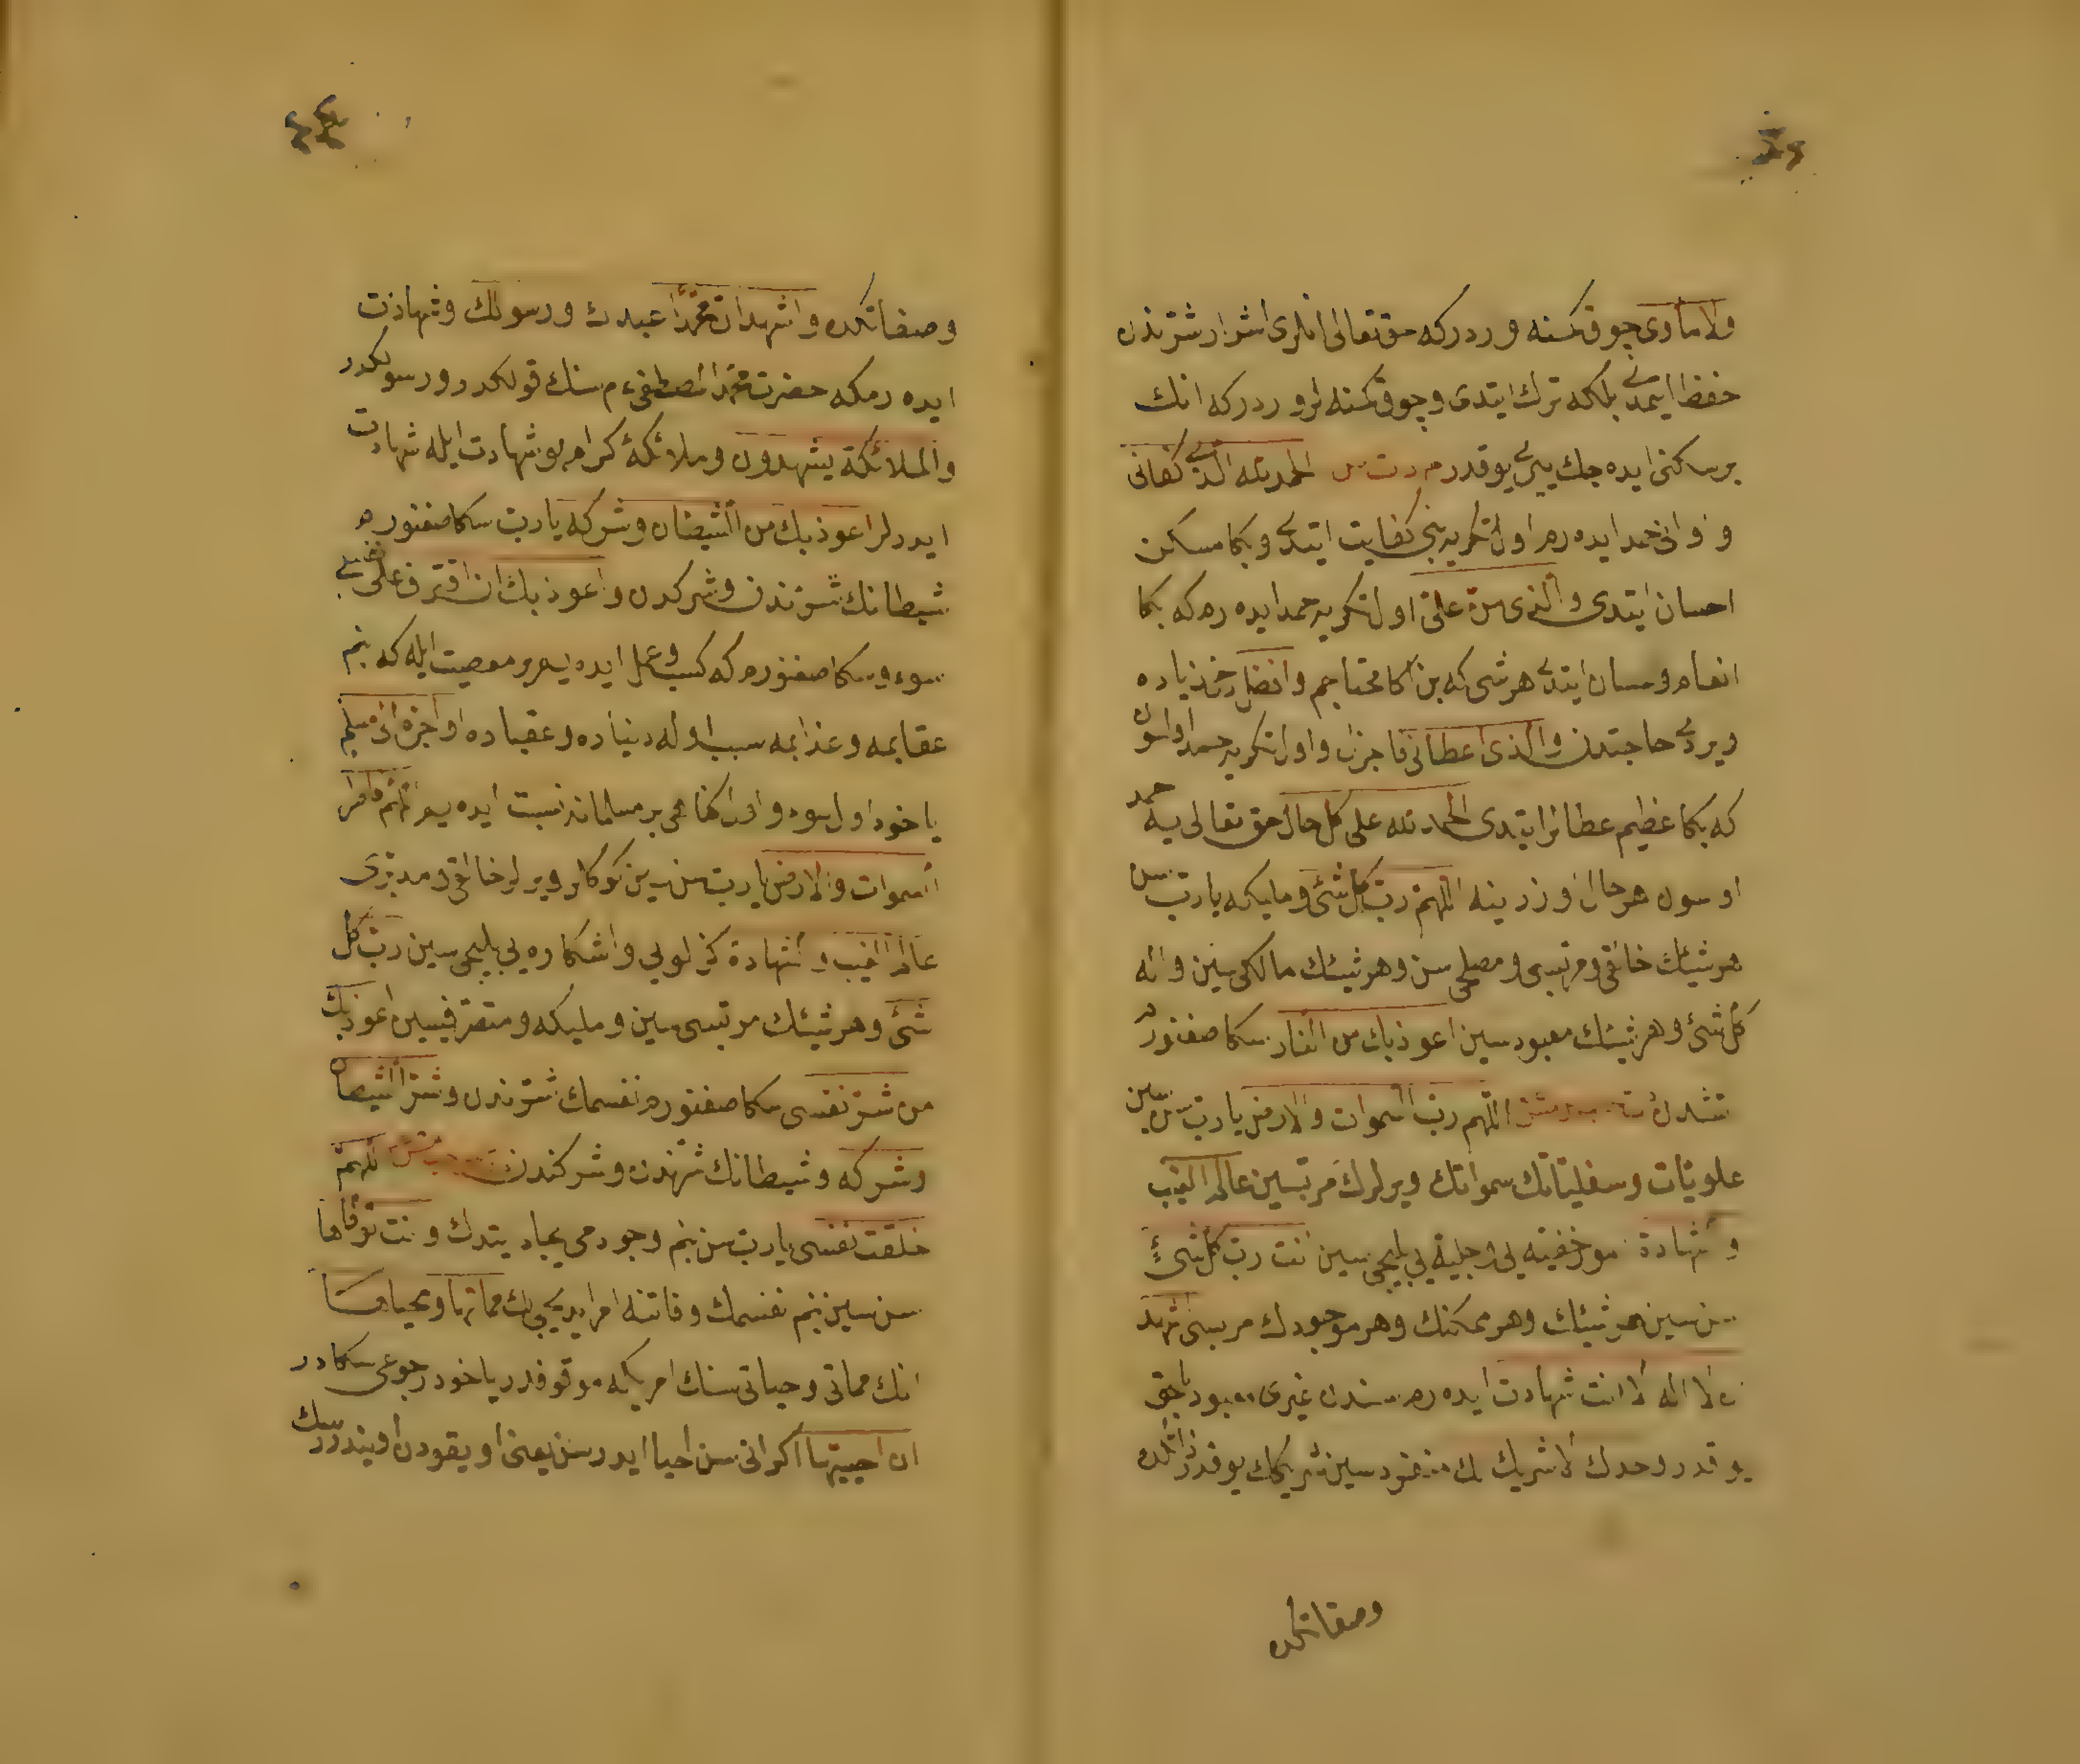 ولا مأوى چوق كسنه وردر كه حق تعالى انلرى اشرار شرندن
حفظ ايتمدى بلكه ترك ايتدى وچوق كسنه لر وردر كه انك
بر مسكنى ايده جك ييرى يوقدر الحمد لله الذى كفانى
وآوانى حمد ايده رم اول تكرى يه بنى كفايت ايتدى وبكا مسكن
احسان ايتدى والذى من على اول تكرى يه حمد ايده رم كه بكا
انعام واحسان ايتدى هر شى كه بن اكا محتاجم وافضل زياده
ويردى حاجتدن والذى اعطانى فاجزل واول تكرى يه حمد اولسون
كه بكا عظيم عطالر ايتدى الحمد لله على كل حال حق تعالى يه حمد
اولسون هر حال اوزرينه اللهم رب كل شئ ومليكه يا رب سن
هر شيئك خالقى ومربيسى ومصلحى سن وهر شيئك مالكى سين واله
كل شئ وهر شيئك معبودسين اعوذ بك من النار سكا صغنورم
اللهم رب السموات والارض يا رب سن سين
علويات وسفلياتك سمواتك ويرلرك مربيسين عالم الغيب
والشهادة امور خفيه يى وجليه يى بيليجى سين انت رب كل شئ
سن سين هر شيئك وهر ممكنك وهر موجودك مربيسى اشهد
ان لا اله الا انت شهادت ايده رم سندن غيرى معبود بالحق
يوقدر وحدك لا شريك لك منفردسين شريكك يوقدر ذاتكده
وصفاتكده
وصفاتكده واشهد ان محمدا عبدك ورسولك وشهادت
ايده رم كه حضرت محمد المصطفى عم سنك قولكدر ورسولكدر
والملائكة يشهدون وملائكۀ كرام بو شهادت ايله شهادت
ايدرلر اعوذ بك من الشيطان وشركه يا رب سكا صغنورم
شيطانك شرندن وشركندن واعوذ بك ان اقترف على نفسى
سوء وسكا صغنورم كه كسب وعمل ايده يم بر معصيت ايله كه بنم
عقابمه وعذابمه سبب اوله دنياده وعقباده او اجره الى مسلم
ياخود اول سوء واول كناهى بر مسلمانه نسبت ايده يم اللهم فاطر
السموات والارض يا رب سن سين كوكلر ويرلر خالقى ومدبرى
عالم الغيب والشهادة كيزلويى واشكاره يى بيليجى سين رب كل
شئ وهر شيئك مربيسى سين ومليكه ومتصرفيسين اعوذ بك
من شر نفسى سكا صغنورم نفسمك شرندن وشر الشيطان
وشركه وشيطانك شرندن وشركندن اللهم
خلقت نفسى يا رب سن بنم وجودمى ايجاد ايتدك وانت توفاها
سن سين بنم نفسمك وفاتنه امر ايديجى لك مماتها ومحياها
انك مماتى وحياتى سنك امريكه موقوفدر ياخود رجوعى سكادر
ان احييتها اكر انى سن احيا ايدرسن يعنى اويقودن اويندررسك